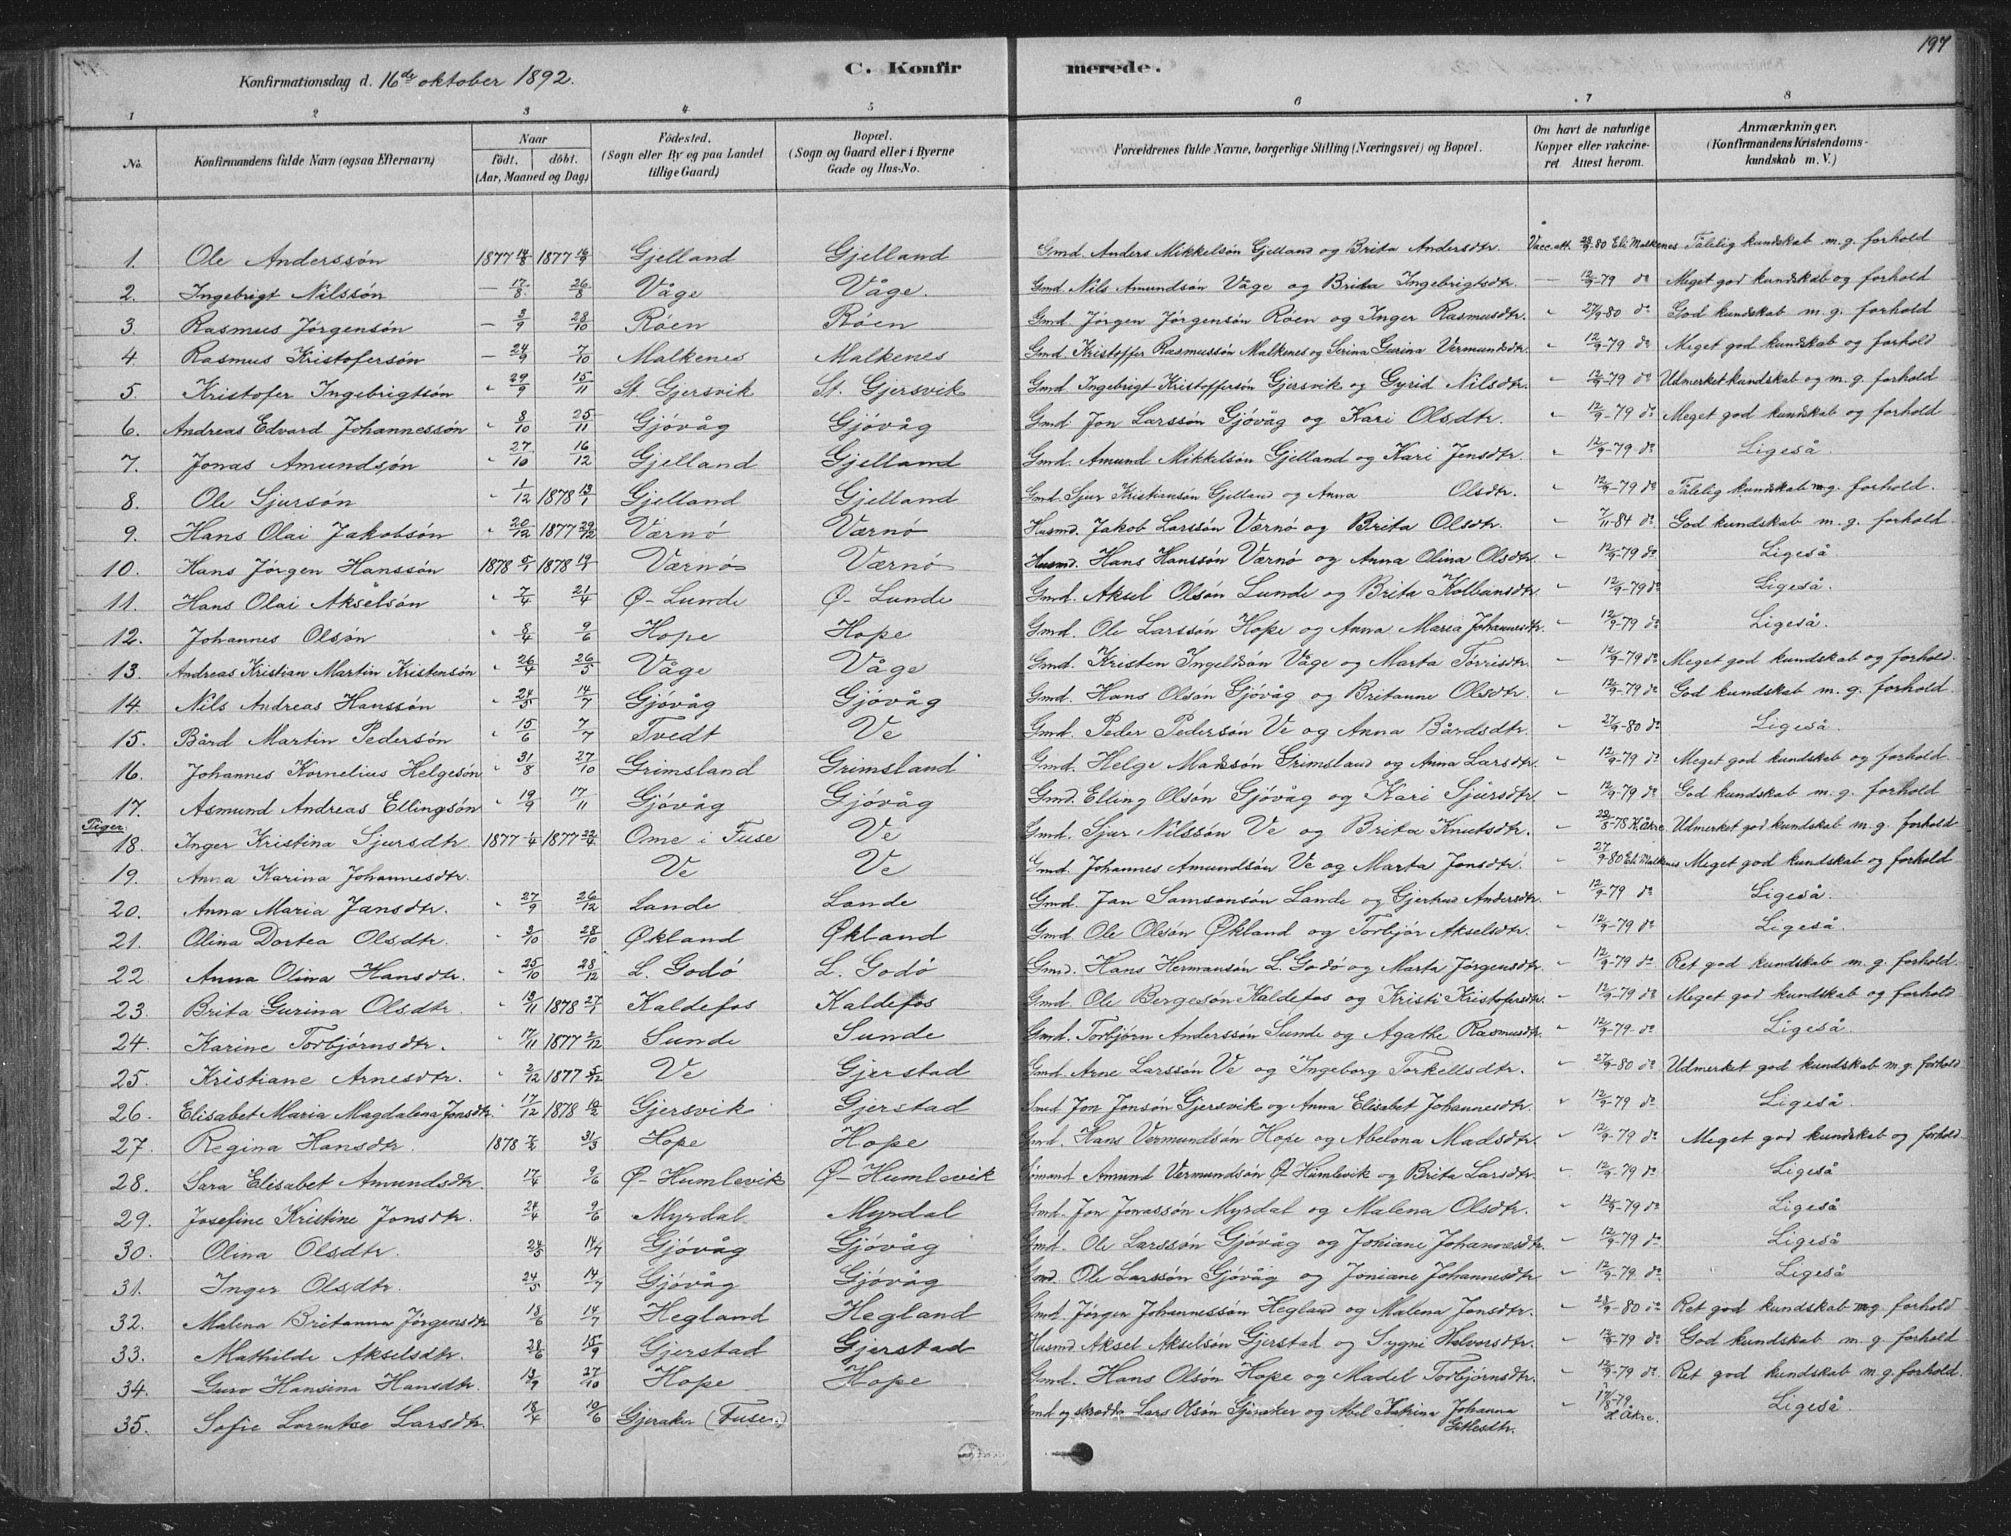 197
Konfirmationsdag d. 16de oktober 1892.
C. Konfirmerede.
1 2 3 4 5 6 7 8
No. Konfirmandens fulde Navn (ogsaa Efternavn) Naar født. døbt. (Aar, Maaned og Dag) Fødested. (Sogn eller By og paa Landet tillige Gaard) Bopæl. (Sogn og Gaard eller i Byerne Gade og Hus-No. Forældrenes fulde Navne, borgerlige Stilling (Næringsvei) og Bopæl. Om havt de naturlige Kopper eller vakcineret Attest herom. Anmærkninger. (Konfirmandens Kristendomskundskab m. V.)
1. Ole Anderssøn 1877 1877 Gjelland Gjelland Gmd. Anders Mikkelsøn Gjelland og Brita Andersdtr. Vacc. att. 28/9-80 El. Malkenes Tålelig kundskab m. g. forhold
2. Ingebrigt Nilssøn — 17/8 26/8 Våge Våge. Gmd. Nils Amundsøn Våge og Brita Ingebrigtsdtr. — 12/9-79 do Meget god kundskab og forhold
3. Rasmus Jörgensøn — 3/9 28/10 Röen Röen Gmd. Jörgen Jörgensøn Röen og Inger Rasmusdtr. " 27/9-80 do God kundskab m. g. forhold
4. Rasmus Kristofersøn — 24/9 7/10 Malkenes Malkenes Gmd. Kristoffer Rasmussøn Malkenes og Serina Gurina Vermundsdtr " 12/9-79 do Meget god kundskab og forhold
5. Kristofer Ingebrigtsøn " 29/9 15/11 St. Gjersvik St. Gjersvik Gmd. Ingebrigt Kristoffersøn Gjersvik og Gyrid Nilsdtr. " 12/9-79 do Udmerket kundskab og m. g. forhold
6. Andreas Edvard Johannessøn " 8/10 25/11 Gjövåg Gjövåg Gmd. Jon Larssøn Gjövåg og Kari Olsdtr. " 12/9-79 do Meget god kundskab og forhold
7. Jonas Amundsøn " 27/10 16/12 Gjelland Gjelland Gmd. Amund Mikkelsøn Gjelland og Kari Jensdtr " 12/9-79 do Ligeså.
8. Ole Sjursøn " 1/12 1878 13/1 Gjelland Gjelland Gmd. Sjur Kristiansøn Gjelland og Anna Olsdtr. " 12/9-79 do Tålelig kundskab m. g. forhold.
9. Hans Olai Jakobsøn " 20/12 1877 29/12 Værnö Værnö Husmd. Jakob Larssøn Værnö og Brita Olsdtr. " 7/11-84 do God kundskab m. g. forhold
10. Hans Jörgen Hanssøn 1878 5/1 1878 19/1 Værnö Værnö Husmd. Hans Hanssøn Værnö og Anna Olina Olsdtr " 12/9-79 do Ligeså.
11. Hans Olai Akselsøn " 7/4 21/4 Ø- Lunde Ø- Lunde Gmd. Aksel Olsøn Lunde og Brita Kolbensdtr " 12/9-79 do Ligeså.
12. Johannes Olsøn " 8/4 9/6 Hope Hope Gmd. Ole Larssøn Hope og Anna Maria Johannesdtr. " 12/9-79 do Ligeså.
13. Andreas Kristian Martin Kristensøn " 26/4 26/5 Våge Våge Gmd. Kristen Våge og Marta Törrisdtr. " 12/9-79 do Meget god kundskab og forhold.
14. Nils Andreas Hanssøn " 24/5 14/7 Gjövåg Gjövåg Gmd. Hans Olsøn Gjövåg og Britanne Olsdtr. " 12/9-79 do God kundskab m. g. forhold.
15. Bård Martin Pedersøn " 15/6 7/7 Tvedt Ve Gmd. Peder Pedersøn Ve og Anna Bårdsdtr. " 27/9-80 do Ligeså.
16. Johannes Kornelius Helgesøn " 31/8 27/10 Grimsland Grimsland Gmd. Helge Grimsland og Anna Larsdtr " 12/9-79 do Meget god kundskab og forhold.
17. Asmund Andreas Ellingsøn " 19/9 17/11 Gjövåg Gjövåg Gmd. Elling Olsøn Gjövåg og Kari Sjursdtr. " 12/9-79 do God kundskab m. g. forhold
Piger.
18. Inger Kristina Sjursdtr 1877 1/4 1877 22/4 Ome i Fuse Ve Gmd. Sjur Nilssøn Ve og Brita Knutsdtr. " 22/8-78 H. Åkre. Udmerket god kundskab m. g. forhold
19. Anna Karina Johannesdtr. Ve Ve Gmd. Johannes Amundsøn Ve og Marta Jonsdtr. " 27/9-80 El. Malkenes Meget god kundskab og forhold
20. Anna Maria Jansdtr. " 27/9 26/12 Lande Lande Gmd. Jan Samsonsøn Lande og Gjertrud Andersdtr " 12/9-79 do Ligeså.
21. Olina Dortea Olsdtr. " 3/10 28/10 Økland Økland Gmd. Ole Olsøn Økland og Torbjør Akselsdtr. " 12/9-79 do Ligeså.
22 Anna Olina Hansdtr. " 25/10 28/12 L. Godö L. Godö Gmd. Hans Hermansøn L. Godö og Marta Jörgensdtr " 12/9-79 do Ret god kundskab m. g. forhold.
23. Brita Gurina Olsdtr. " 13/11 1878 27/1 Kaldefos Kaldefos Gmd. Ole Bergesøn Kaldefos og Kristi Kristofersdtr " 12/9-79 do Meget god kundskab og forhold
24. Karine Torbjörnsdtr. " 17/11 1877 2/12 Sunde Sunde Gmd. Torbjörn Anderssøn Sunde og Agathe Rasmusdtr " 12/9-79 do Ligeså.
25. Kristiane Arnesdtr. " 2/12 1877 5/12 Ve Gjerstad Gmd. Arne Larssøn Ve og Ingeborg Torkellsdtr. " 27/9-80 do Udmerket god kundskab m. g. forhold
26. Elisabet Maria Magdalena Jonsdtr " 17/12 1878 10/2 Gjersvik Gjerstad Gmd Jon Jonsøn Gjersvik og Anna Elisabet Johannesdtr. " 12/9-79 do Ligeså.
27. Regina Hansdtr. 1878 7/2 31/3 Hope Hope Gmd. Hans Vermundsøn Hope og Abelona Madsdtr " 12/9-79 do Meget god kundskab og forhold.
28. Sara Elisabet Amundsdtr. 17/4 9/6 Ø- Humlevik Ø- Humlevik Sömand Amund Vermundsøn Ø- Humlevik og Brita Larsdtr. " 12/9-79 do Ligeså
29. Josefine Kristine Jonsdtr. 24/4 9/6 Myrdal Myrdal Gmd. Jon Jonassøn Myrdal og Malena Olsdtr. " 12/9-79 do Ligeså
30. Olina Olsdtr. 24/5 14/7 Gjövåg Gjövåg Gmd. Ole Larssøn Gjövåg og Joniane Johannesdtr " 12/9-79 do Ligeså
31. Inger Olsdtr. 24/5 14/7 Gjövåg Gjövåg Gmd. Ole Larssøn Gjövåg og Joniane Johannesdtr " 12/9-79 do Ligeså
32. Malena Britanna Jörgensdtr 18/6 14/7 Hegland Hegland Gmd. Jörgen Johannessøn Hegland og Malena Jonsdtr. " 28/9-80 do Ret god kundskab m. g. forhold.
33. Mathilde Akselsdtr. 28/6 15/9 Gjerstad Gjerstad Husmd Aksel Akselsøn Gjerstad og Sygni Halvorsdtr. " 12/9-79 do God kundskab m. g. forhold
34. Guro Hansina Hansdtr. 13/9 27/10 Hope Hope Gmd. Hans Olsøn Hope og Madel Torbjörnsdtr. " 12/9-79 do Ret god kundskab m. g. forhold.
35. Sofie Lorentse Larsdtr. 18/4 10/6 Gjeraker (Fuse) Gmd og Lars Olsøn Gjeraker og Abel Katrina Johanna " 17/8-79 H. Åkre. Ligeså.